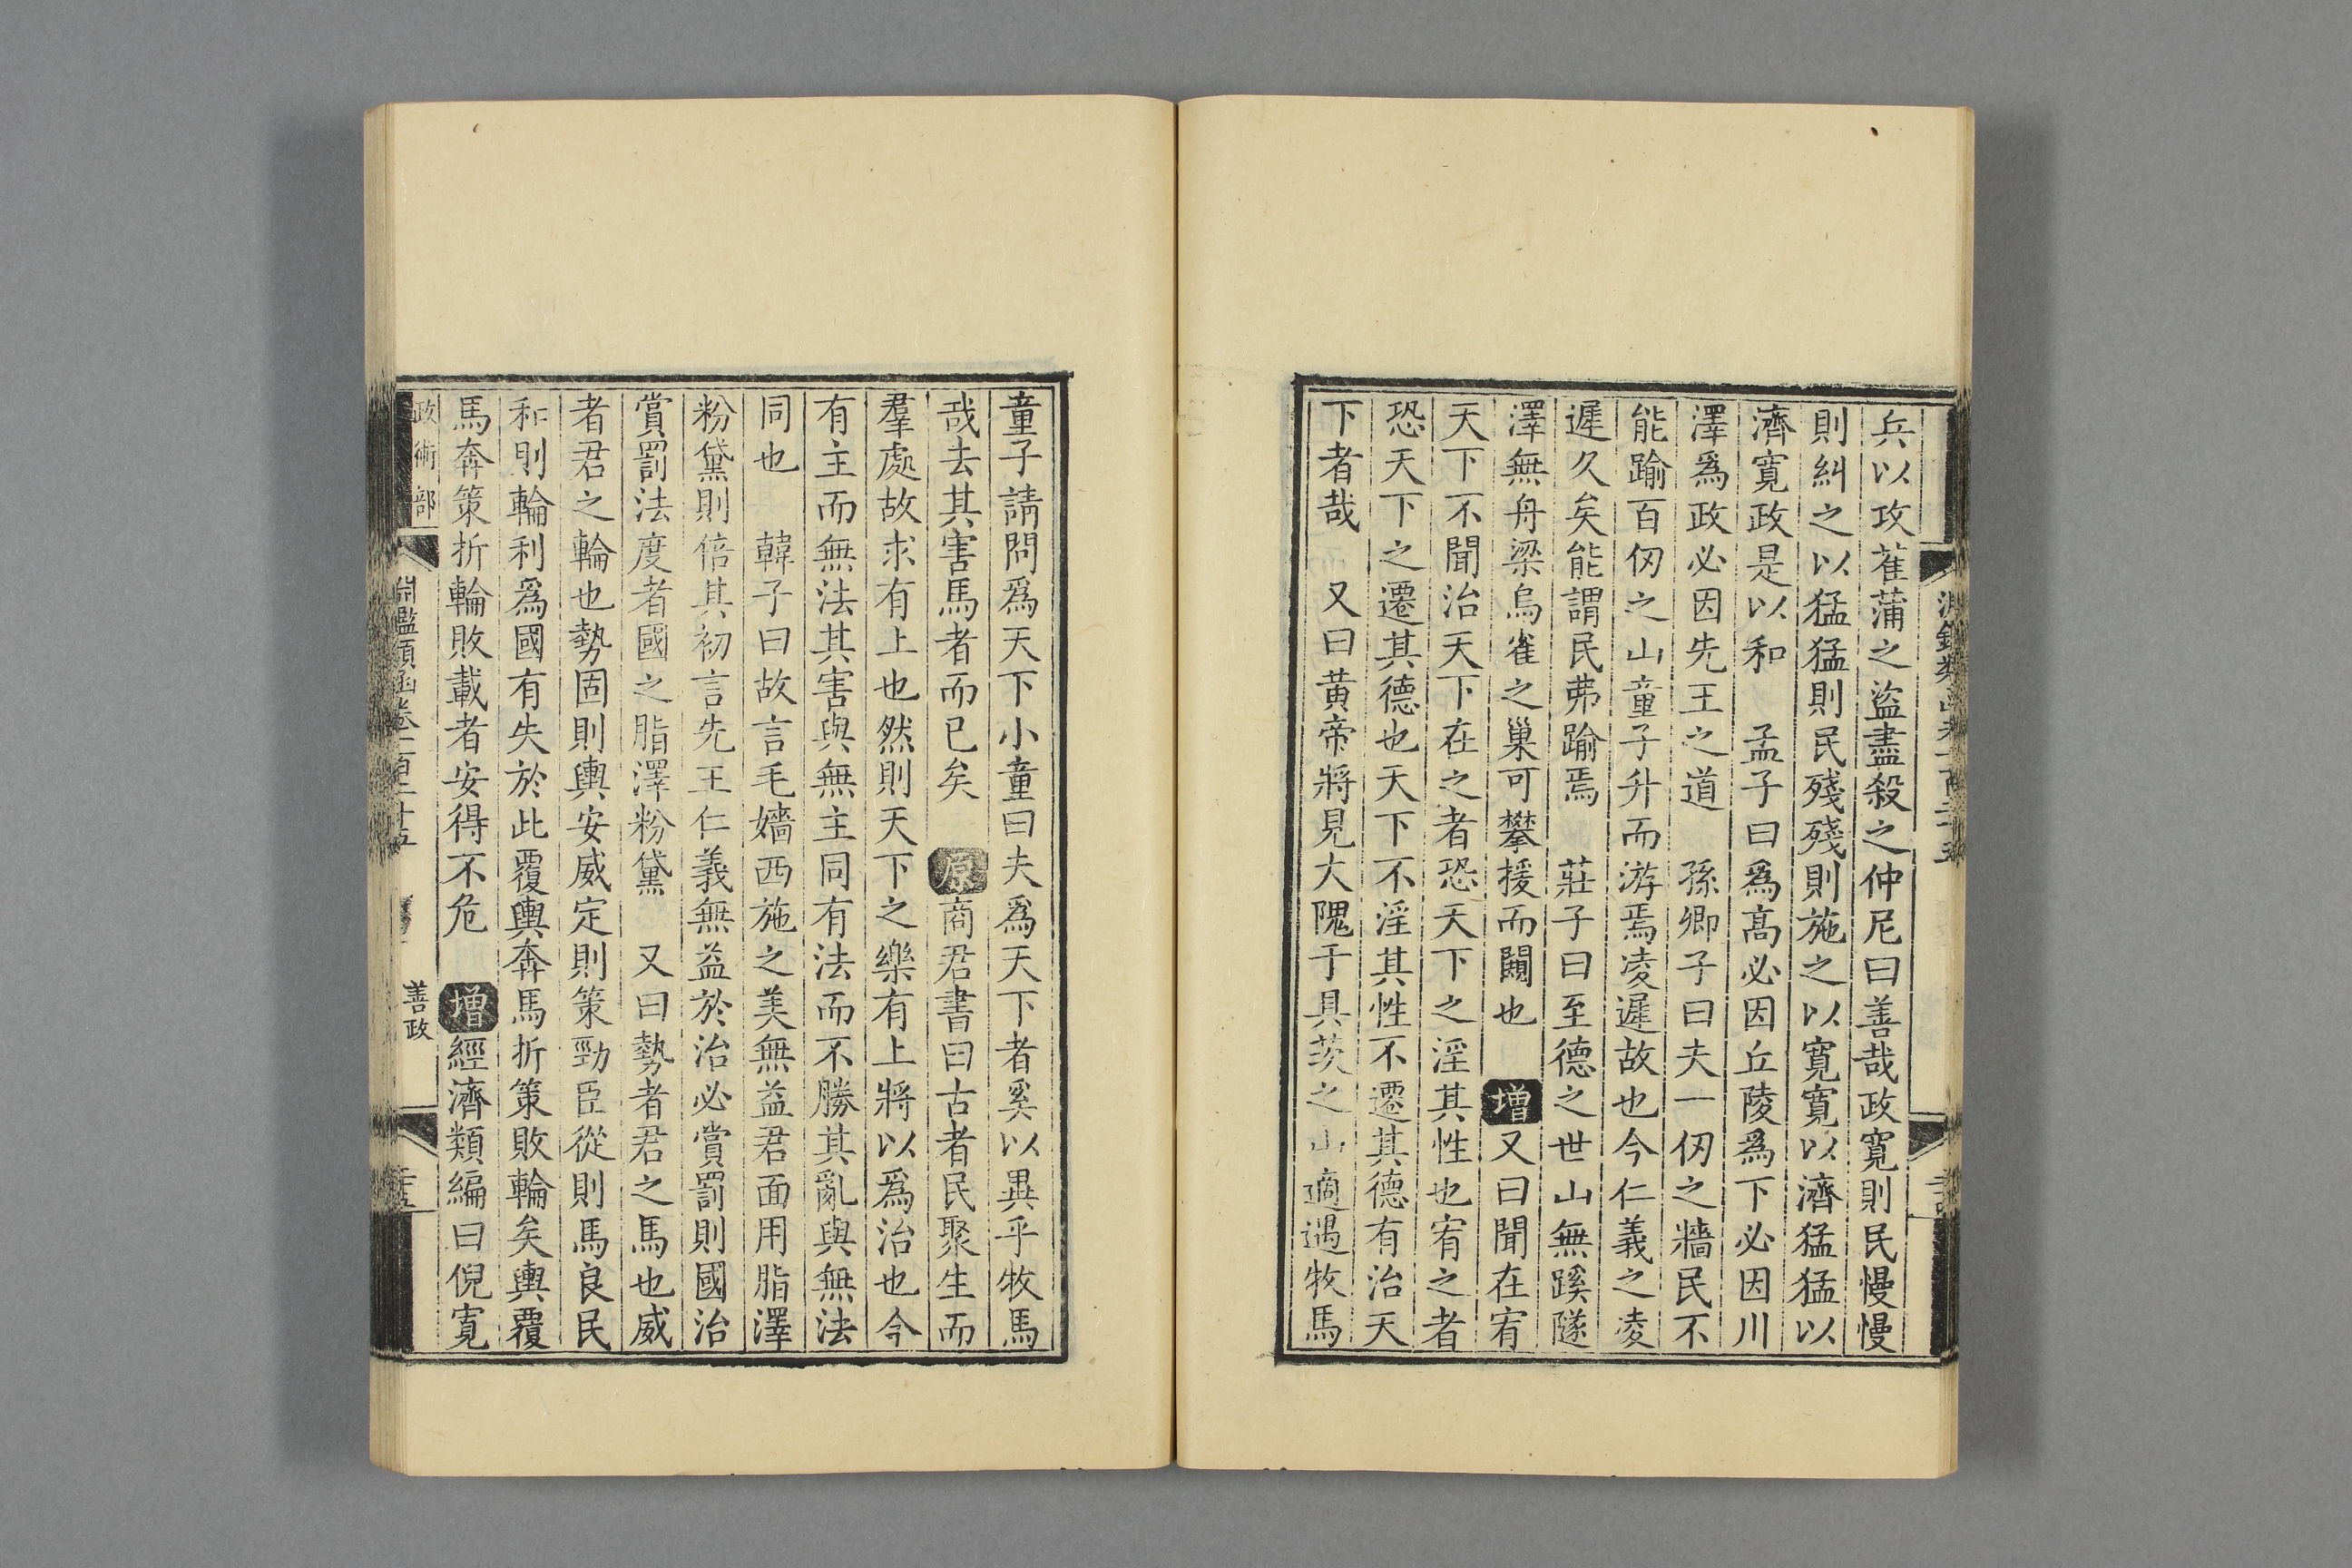 兵以攻萑蒲之盜盡殺之仲尼曰善哉政寬則民慢慢
則糾之以猛猛則民殘殘則施之以寬寬以濟猛猛以
濟寬政是以和　孟子曰爲髙必因丘陵爲下必因川
澤爲政必因先王之道　孫卿子曰夫一仞之牆民不
能踰百仞之山童子升而游焉凌遲故也今仁義之凌
遲久矣能謂民弗踰焉　莊子曰至德之世山無蹊隧
澤無舟梁烏雀之巢可攀援而闚也　增又曰聞在宥
天下不聞治天下在之者恐天下之淫其性也宥之者
恐天下之遷其德也天下不淫其性不遷其德有治天
下者哉　又曰黃帝將見大隗于具茨之山適遇牧馬
童子請問爲天下小童曰夫爲天下者奚以異乎牧馬
哉去其害馬者而已矣　原商君書曰古者民聚生而
羣處故求有上也然則天下之樂有上將以爲治也今
有主而無法其害與無主同有法而不勝其亂與無法
同也　韓子曰故言毛嬙西施之美無益君面用脂澤
粉黛則倍其初言先王仁義無益於治必賞罰則國治
賞罰法度者國之脂澤粉黛　又曰勢者君之馬也威
者君之輪也勢固則輿安威定則策勁臣從則馬良民
和則輪利爲國有失於此覆輿奔馬折策敗輪矣輿覆
馬奔策折輪敗載者安得不危　增經濟類編曰倪寬
政術部　淵鑑類函卷一百二十五　善政